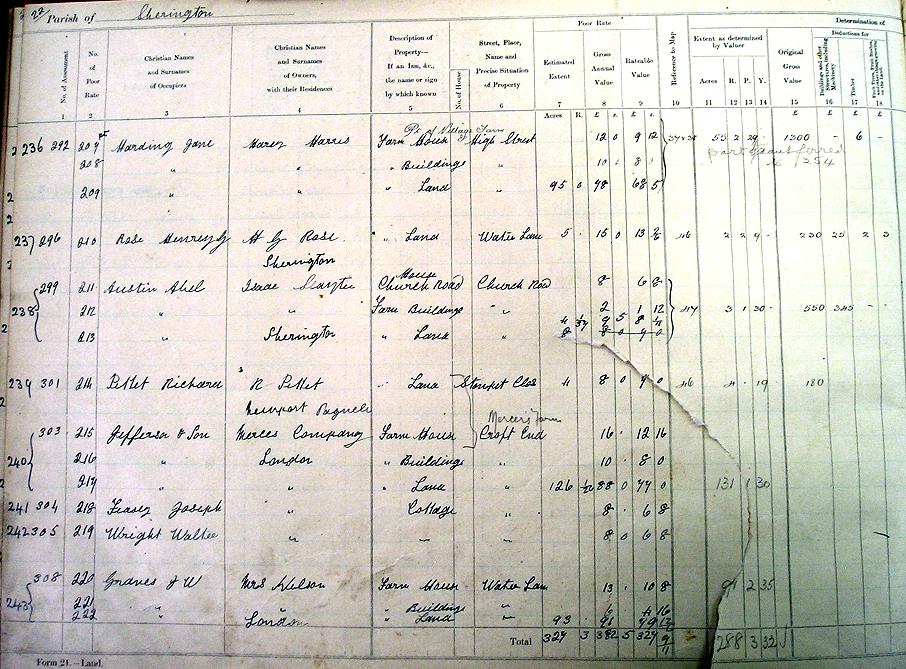 22 Parish of Sherington
Poor Rate
Determination of
No. of Assessment
No. of Poor Rate
Christian Names and Surnames of Occupiers
Christian Names and Surnames of Owners, with their Residences
Description of Property— If an Inn, &c., the name or sign by which known
No. of House
Street, Place, Name and Precise Situation of Property
Estimated Extent
Gross Annual Value
Rateable Value
Reference to Map
Extent as determined by Valuer
Acres R. P. Y.
Original Gross Value
Deductions for
Buildings and other Structures, including Machinery
Timber
1 2 3 4 5 6 7 8 9 10 11 12 13 14 15 16 17 18
Acres R. £ s. £ s.
Pt of Village Farm
236 292 207 Harding Jane Harry Harris Farm House High Street 12 0 9 12 55 2 29 1300 - 6 -
part transferred
to 254
208 " " " Buildings 10 . 8 0
209 " " " Land 95 0 78 68 5
237 296 210 Rose Henry G H G Rose " Land Water Lane 5 . 15 0 13 2 116 2 2 9 230 25 2 3
Sherington
House
238 299 211 Austin Abel Isaac Slayter Church Road Church Road 8 6 8
212 " " Farm Buildings " 2 1 12 117 3 1 30 550 345 - -
213 " Sherington " Land "
239 301 214 Pettet Richard R Pettet " Land 4 8 0 7 0 116 4 . 19 180
Newport Pagnell
Mercers Farm
240 303 215 Jefferson & Son Mercers Company Farm House Croft End 16 . 12 16
216 " London " Buildings " 10 . 8 0
217 " " " Land " 126 1/2 88 0 77 0 131 1 30
241 304 218 Feasey Joseph " Cottage " 8 . 6 8
242 305 219 Wright Walter " " " 8 0 6 8
243 308 220 Graves J W Mrs Nelson Farm House Water Lane 13 . 10 8 2 35
221 " " " Buildings "
222 London " Land 93
Total 327 3 382 5 327 288 3 32
Form 21.—Land.